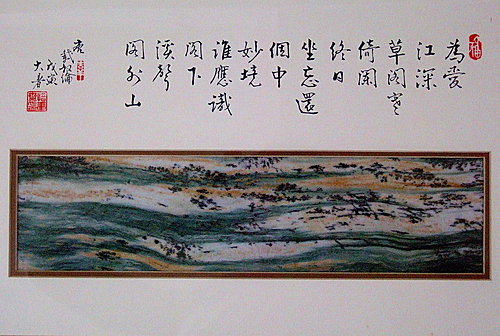 為愛
江深
草閣寒
倚闌
終日
坐忘還
個中
妙境
誰應識
閣下
溪聲
閣外山
戴叔倫
戊寅